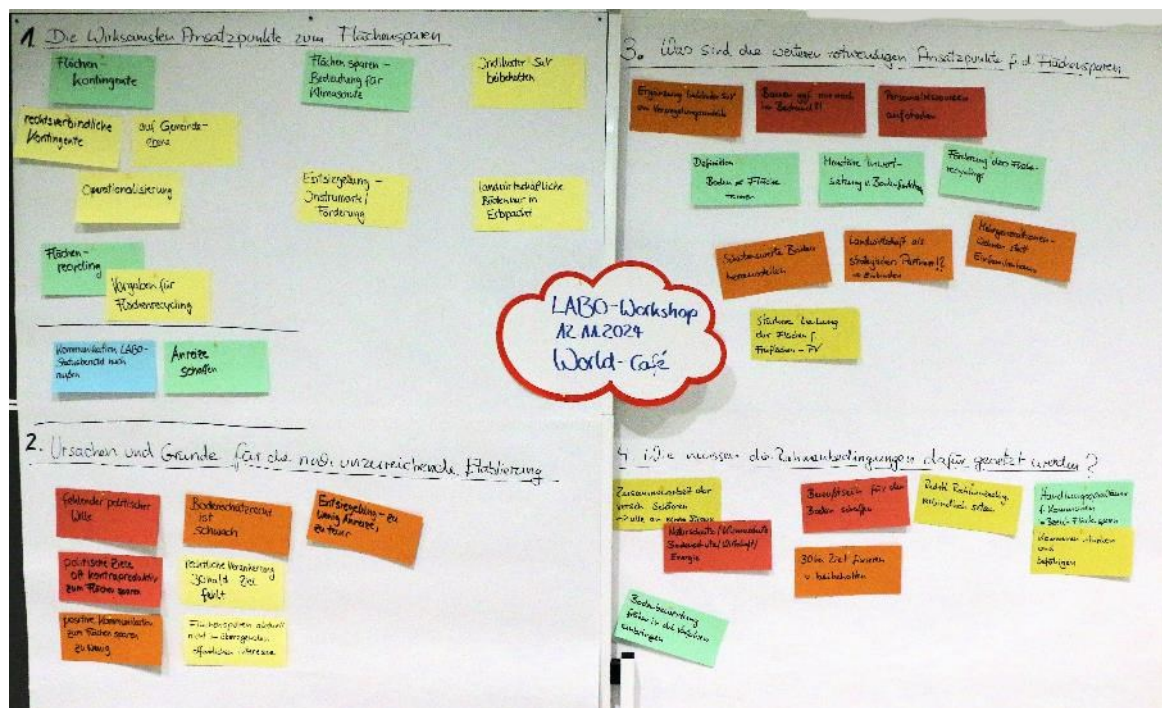 1. Die Wirksamsten Ansatzpunkte zum Flächensparen
Flächen-
kontingente
Flächen sparen -
Bedeutung für
Klimaschutz
Indikator SuV
beibehalten
rechtsverbindliche
Kontingente
auf Gemeinde-
ebene
Operationalisierung
Entsiegelung -
Instrumente/
Förderung
landwirtschaftliche
Böden nur in
Erbpacht
Flächen-
recycling
Vorgaben für
Flächenrecycling
Kommunikation LABO-
Statusbericht nach
außen
Anreize
schaffen
2. Ursachen und Gründe für die noch unzureichende Etablierung
fehlender politischer
Wille
Bodenschutzrecht
ist
schwach
Entsiegelung - zu
wenig Anreize,
zu teuer
politische Ziele
oft kontraproduktiv
zum Flächen sparen
rechtliche Verankerung
30 ha Ziel
fehlt
positive Kommunikation
zum Flächen sparen
zu wenig
Flächensparen
nicht im überragenden
öffentlichen Interesse
LABO-Workshop
12.11.2024
World-Café
3. Was sind die weiteren notwendigen Ansatzpunkte f. d. Flächensparen
Ergänzung Indikator SuV
um Versiegelungsanteile
Bauen ggf. nur noch
im Bestand!!!
Personalressourcen
aufstocken
Definition
Boden ≠ Fläche
trennen
Monetäre Inwert-
setzung v. Bodenfunktion
Förderung des Flächen-
recyclings
Schützenswerte Böden
herausstellen
Landwirtschaft als
strategischen Partner!?
einbinden
Mehrgenerationen-
wohnen statt
Einfamilienhaus
Stärkere Lenkung
der Flächen f.
Freiflächen-PV
4. Wie müssen die Rahmenbedingungen dafür gesetzt werden?
Zusammenarbeit der
versch. Sektoren
Naturschutz/Klimaschutz
Bodenschutz/Wirtschaft/
Energie
Bewusstsein für den
Boden schaffen
verbindlich setzen
Handlungsspielräume
f. Kommunen
Kommunen stärken
und
befähigen
30 ha Ziel fixieren
u. beibehalten
Bodenbewertung
früher in die Verfahren
einbringen